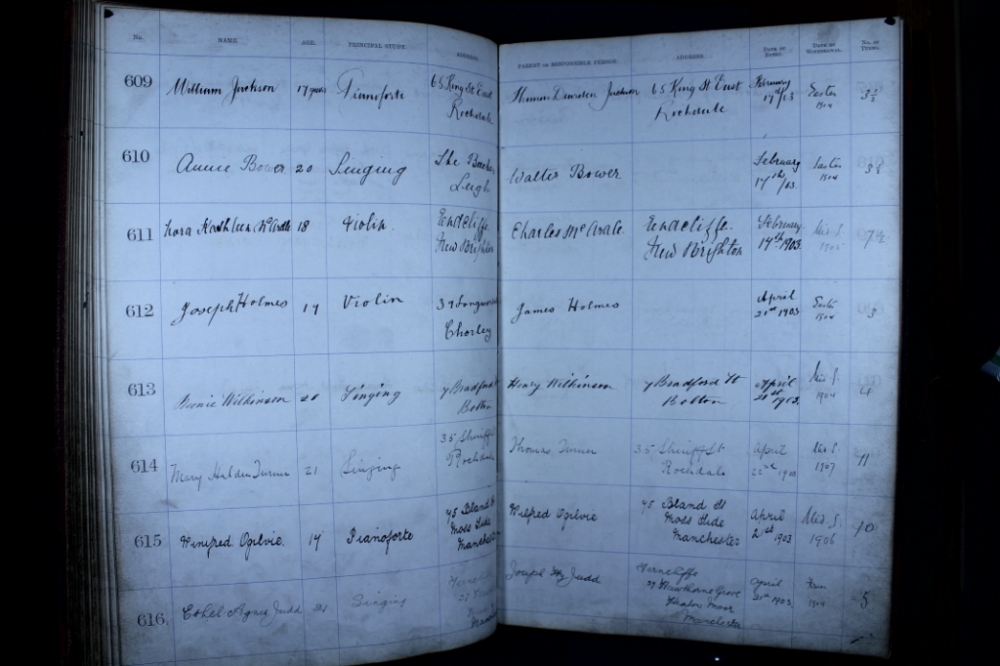 No. NAME. AGE. PRINCIPAL STUDY. ADDRESS. PARENT OR RESPONSIBLE PERSON. ADDRESS. DATE OF ENTRY. DATE OF WITHDRAWAL. No. OF TERMS.
609 William Jackson 17 years Pianoforte 65 King St East Thomas Dearden Jackson 65 King St East February Easter 3½
Rochdale Rochdale 17th/03 1904
610 Annie Bower 20 Singing The Wallis Bower February Easter
Leigh 17th/03. 1904
611 Nora Kathleen McArdle 18 Violin. Endcliffe Charles McArdle. Endcliffe. February Mid S.
New Brighton New Brighton 17th 1903.
612 Joseph Holmes 19 Violin 37 James Holmes April Easter 3
Chorley 21st 1903 1904
613 Wilkinson 20 Singing 7 Bradford Henry Wilkinson 7 Bradford St April Mid S. 4
Bolton Bolton 21st 1903. 1904
614 Mary Turner 21 Singing 35 Sheriff Thomas Turner 35 Sheriff St April Mid S. 11
Rochdale Rochdale 22nd 1903 1907
615 Winifred Ogilvie. 19 Pianoforte 75 Bland St Wilfred Ogilvie 75 Bland St April Mid S. 10
Moss Side Moss Side 21st 1903 1906
Manchester Manchester
616. Ethel Agnes Judd 21 Singing Joseph Judd Ferncliffe April 5
27 27 Hawthorne Grove 21st 1903. 1904
Heaton Moor
Manchester